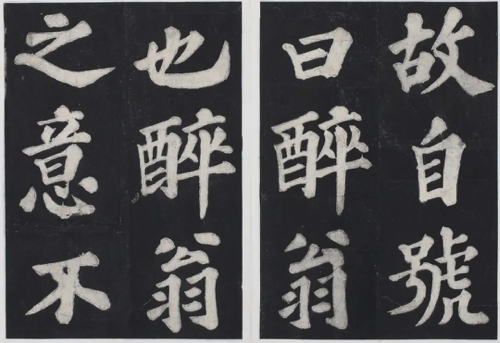 故自號
曰醉翁
也醉翁
之意不